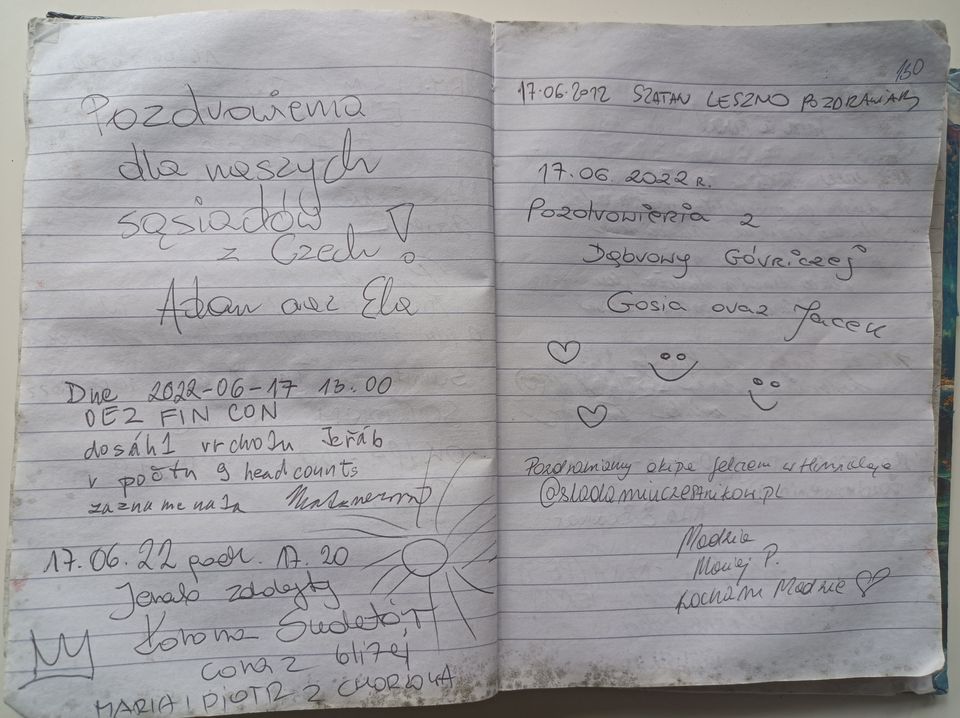 Pozdrowienia
dla naszych
sąsiadów
z Czech!
Adam oraz Ela
Dne 2022-06-17 13.00
DEZ FIN CON
dosáhl vrcholu Jeřáb
v počtu 9 headcounts
zaznamenala
17.06.22 godz. 17.20
Jerab zdobyty
Korona Sudetów
coraz bliżej
MARIA I PIOTR Z CHORZOWA
150
17.06.2012 SZATAN LESZNO POZDRAWIAM
17.06.2022 r.
Pozdrowienia z
Dąbrowy Górniczej
Gosia oraz Jacek
Pozdrawiamy ekipę
@sladamiuczestnikow.pl
Madzia
Maciej P.
kocham Madzię